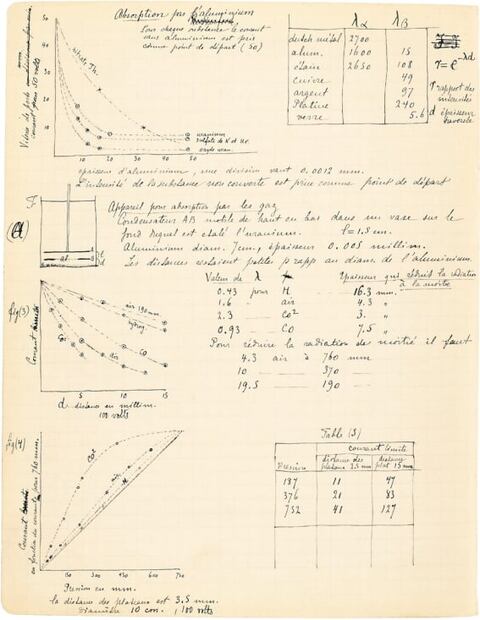 Absorption par l'aluminium
Pour chaque substance le courant
sans aluminium est pris
comme point de départ (50)
50
40
30
20
10
10 20 30 40 50
uranium
sulfate de K et Ur.
oxyde uran.
λα λβ
dutch metal 2700
alum. 1600 15
étain 2650 108
cuivre 49
argent 97
Platine 240
verre 5.6
r = e^-λd
r rapport des
intensités
d épaisseur
traversée
épaisseur d'aluminium, une division vaut 0.0012 mm.
L'intensité de la substance non couverte est prise comme point de départ
Appareil pour absorption par les gaz
Condensateur AB mobile de haut en bas dans un vase sur le
fond duquel est étalé l'uranium. l = 1.5 cm.
Aluminium diam. 7cm, épaisseur 0.005 millim.
Les distances étaient petites p. rapp au diam. de l'aluminium.
Valeur de λ
Épaisseur qui réduit la radiation
à la moitié
0.43 pour H 16.3 mm.
1.6 air 4.3 "
2.3 CO² 3. "
0.93 CO 7.5 "
Pour réduire la radiation de moitié il faut
4.3 air à 760 mm
10 370
19.5 190
fig(3)
Courant
air 190 mm
hydrog.
CO
air
5 10 15
d distance en millim.
100 volts
fig(4)
Courant
en fonction du courant pour 760 mm.
CO²
H
150 300 450 600 750
Pression en mm.
la distance des plateaux est 3.5 mm.
Diamètre 10 cm. , 100 volts
Table (S)
courant limite
Pression distance des plateaux 3.5 mm distance plat 15 mm
187 11 47
376 21 83
752 41 127